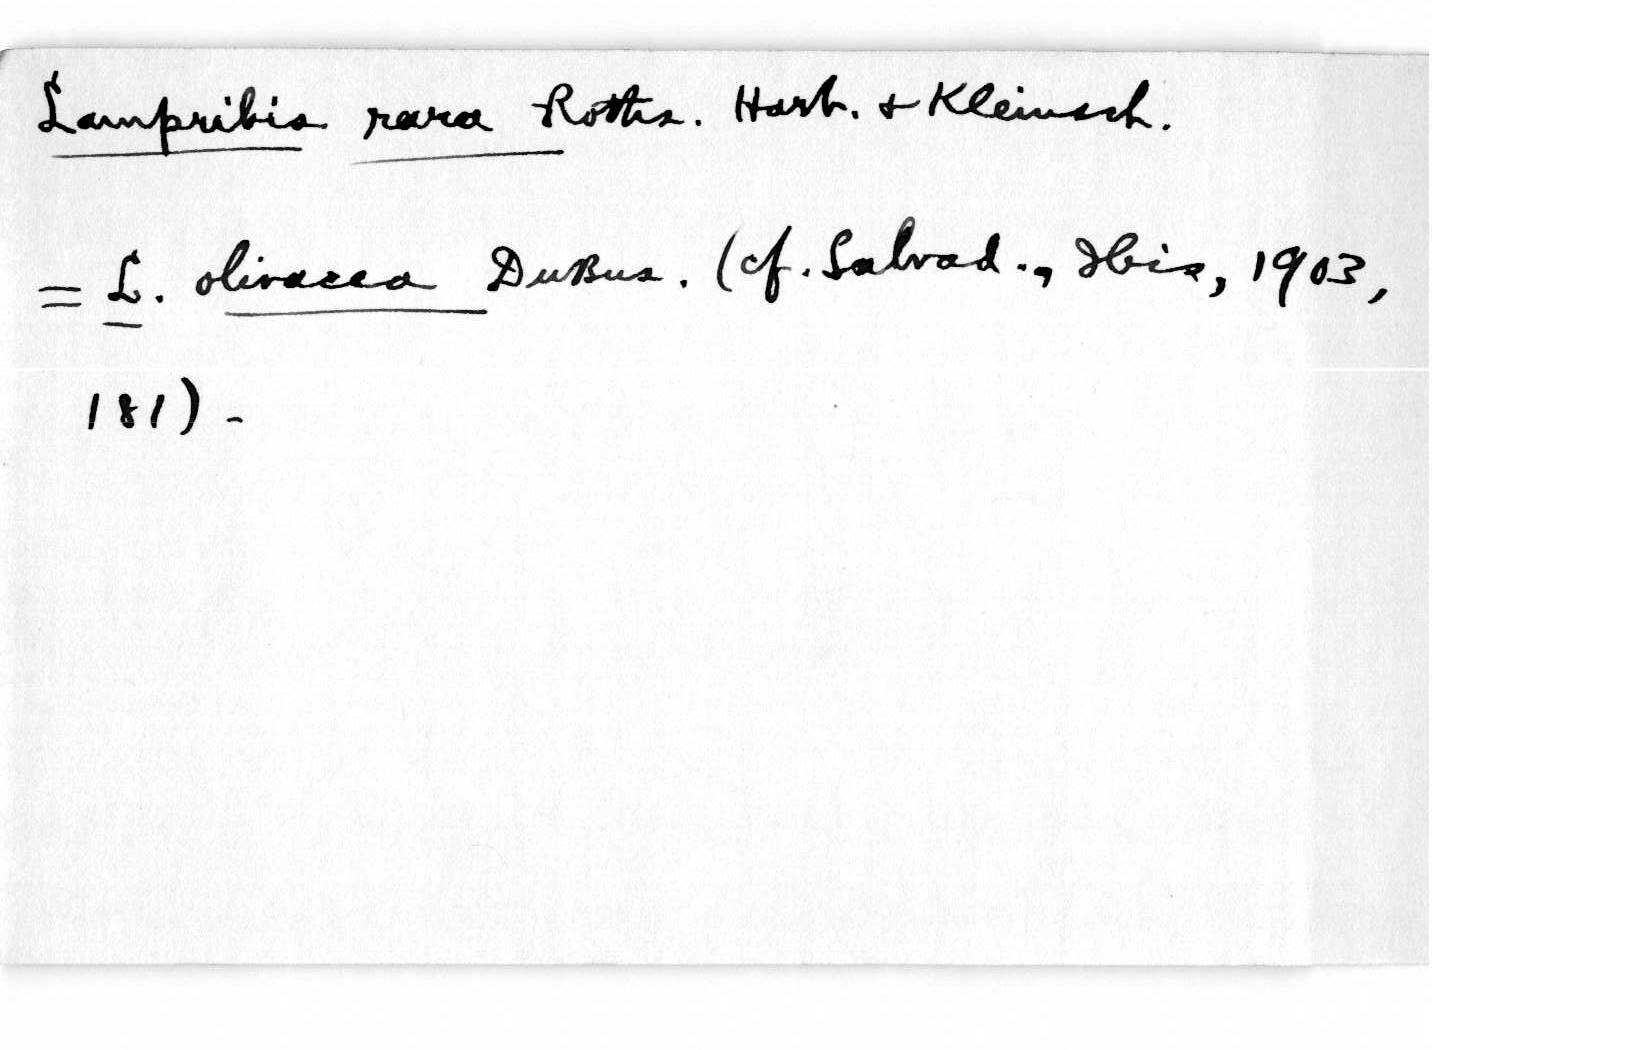 Lampribis rara Roths. Hart. & Kleinsch.
= L. olivacea DuBus. (cf. Salvad., Ibis, 1903,
181) -